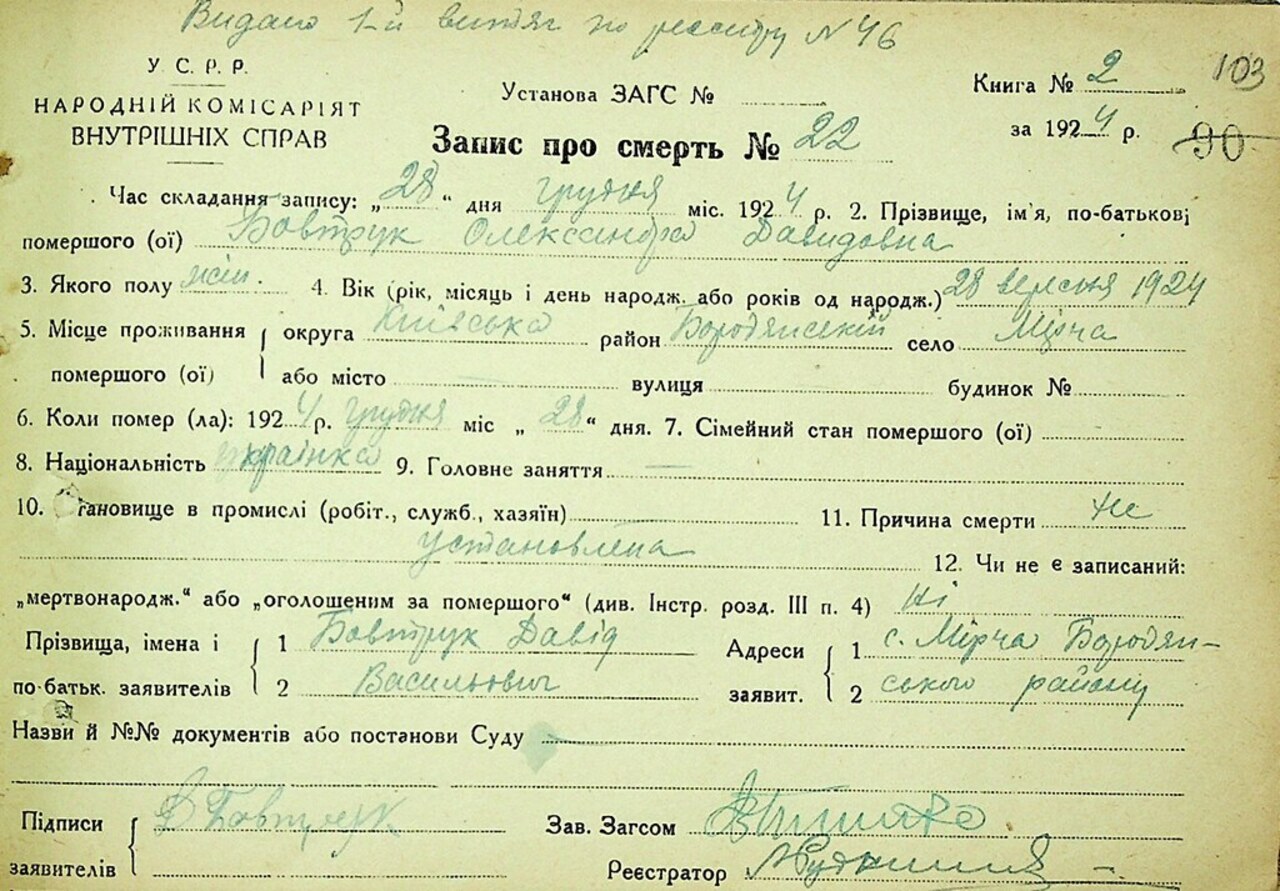 Видано 1-й витяг по реєстру N 46
103
У. С. Р. Р.
НАРОДНІЙ КОМІСАРІЯТ
ВНУТРІШНІХ СПРАВ
Установа ЗАГС №
Книга № 2
за 1924 р.
90
Запис про смерть № 22
Час складання запису: „28" дня грудня міс. 1924 р. 2. Прізвище, ім'я, по-батькові
помершого (ої) Бовтрук Олександра Давидовна
3. Якого полу жін. 4. Вік (рік, місяць і день народж. або років од народж.) 28 вересня 1924
5. Місце проживання округа Київська район Бородянський село Мірча
помершого (ої) або місто вулиця будинок №
6. Коли помер (ла): 1924 р. грудня міс „28" дня. 7. Сімейний стан помершого (ої)
8. Національність українка 9. Головне заняття
10. тановище в промислі (робіт., служб., хазяїн) 11. Причина смерти не
установлена 12. Чи не є записаний:
„мертвонародж." або „оголошеним за помершого" (див. Інстр. розд. III п. 4) Ні
Прізвища, імена і 1 Бовтрук Давід Адреси 1 с. Мірча Бородян-
по-батьк. заявителів 2 Васильович заявит. 2 ського району
Назви й №№ документів або постанови Суду
Підписи Д Бовтрук Зав. Загсом
заявителів Реєстратор